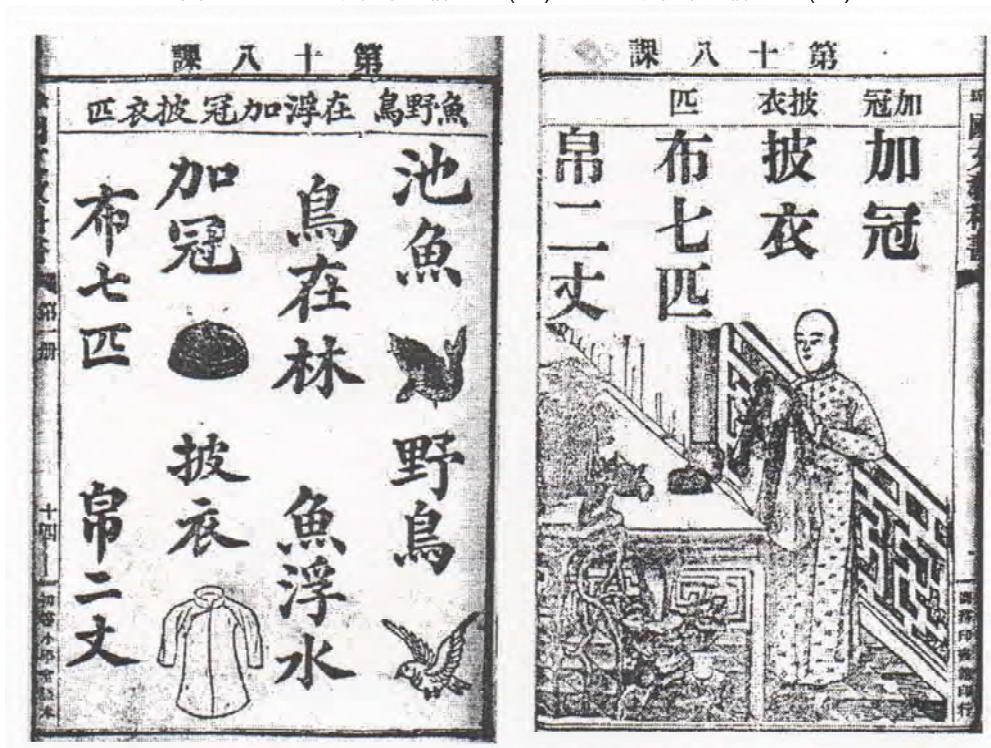 第十八課
魚野鳥 在浮加冠披衣匹
池魚
野鳥
鳥在林
魚浮水
加冠
披衣
布七匹
帛二丈
第一册
十四
第十八課
加冠
披衣
匹
加冠
披衣
布七匹
帛二丈